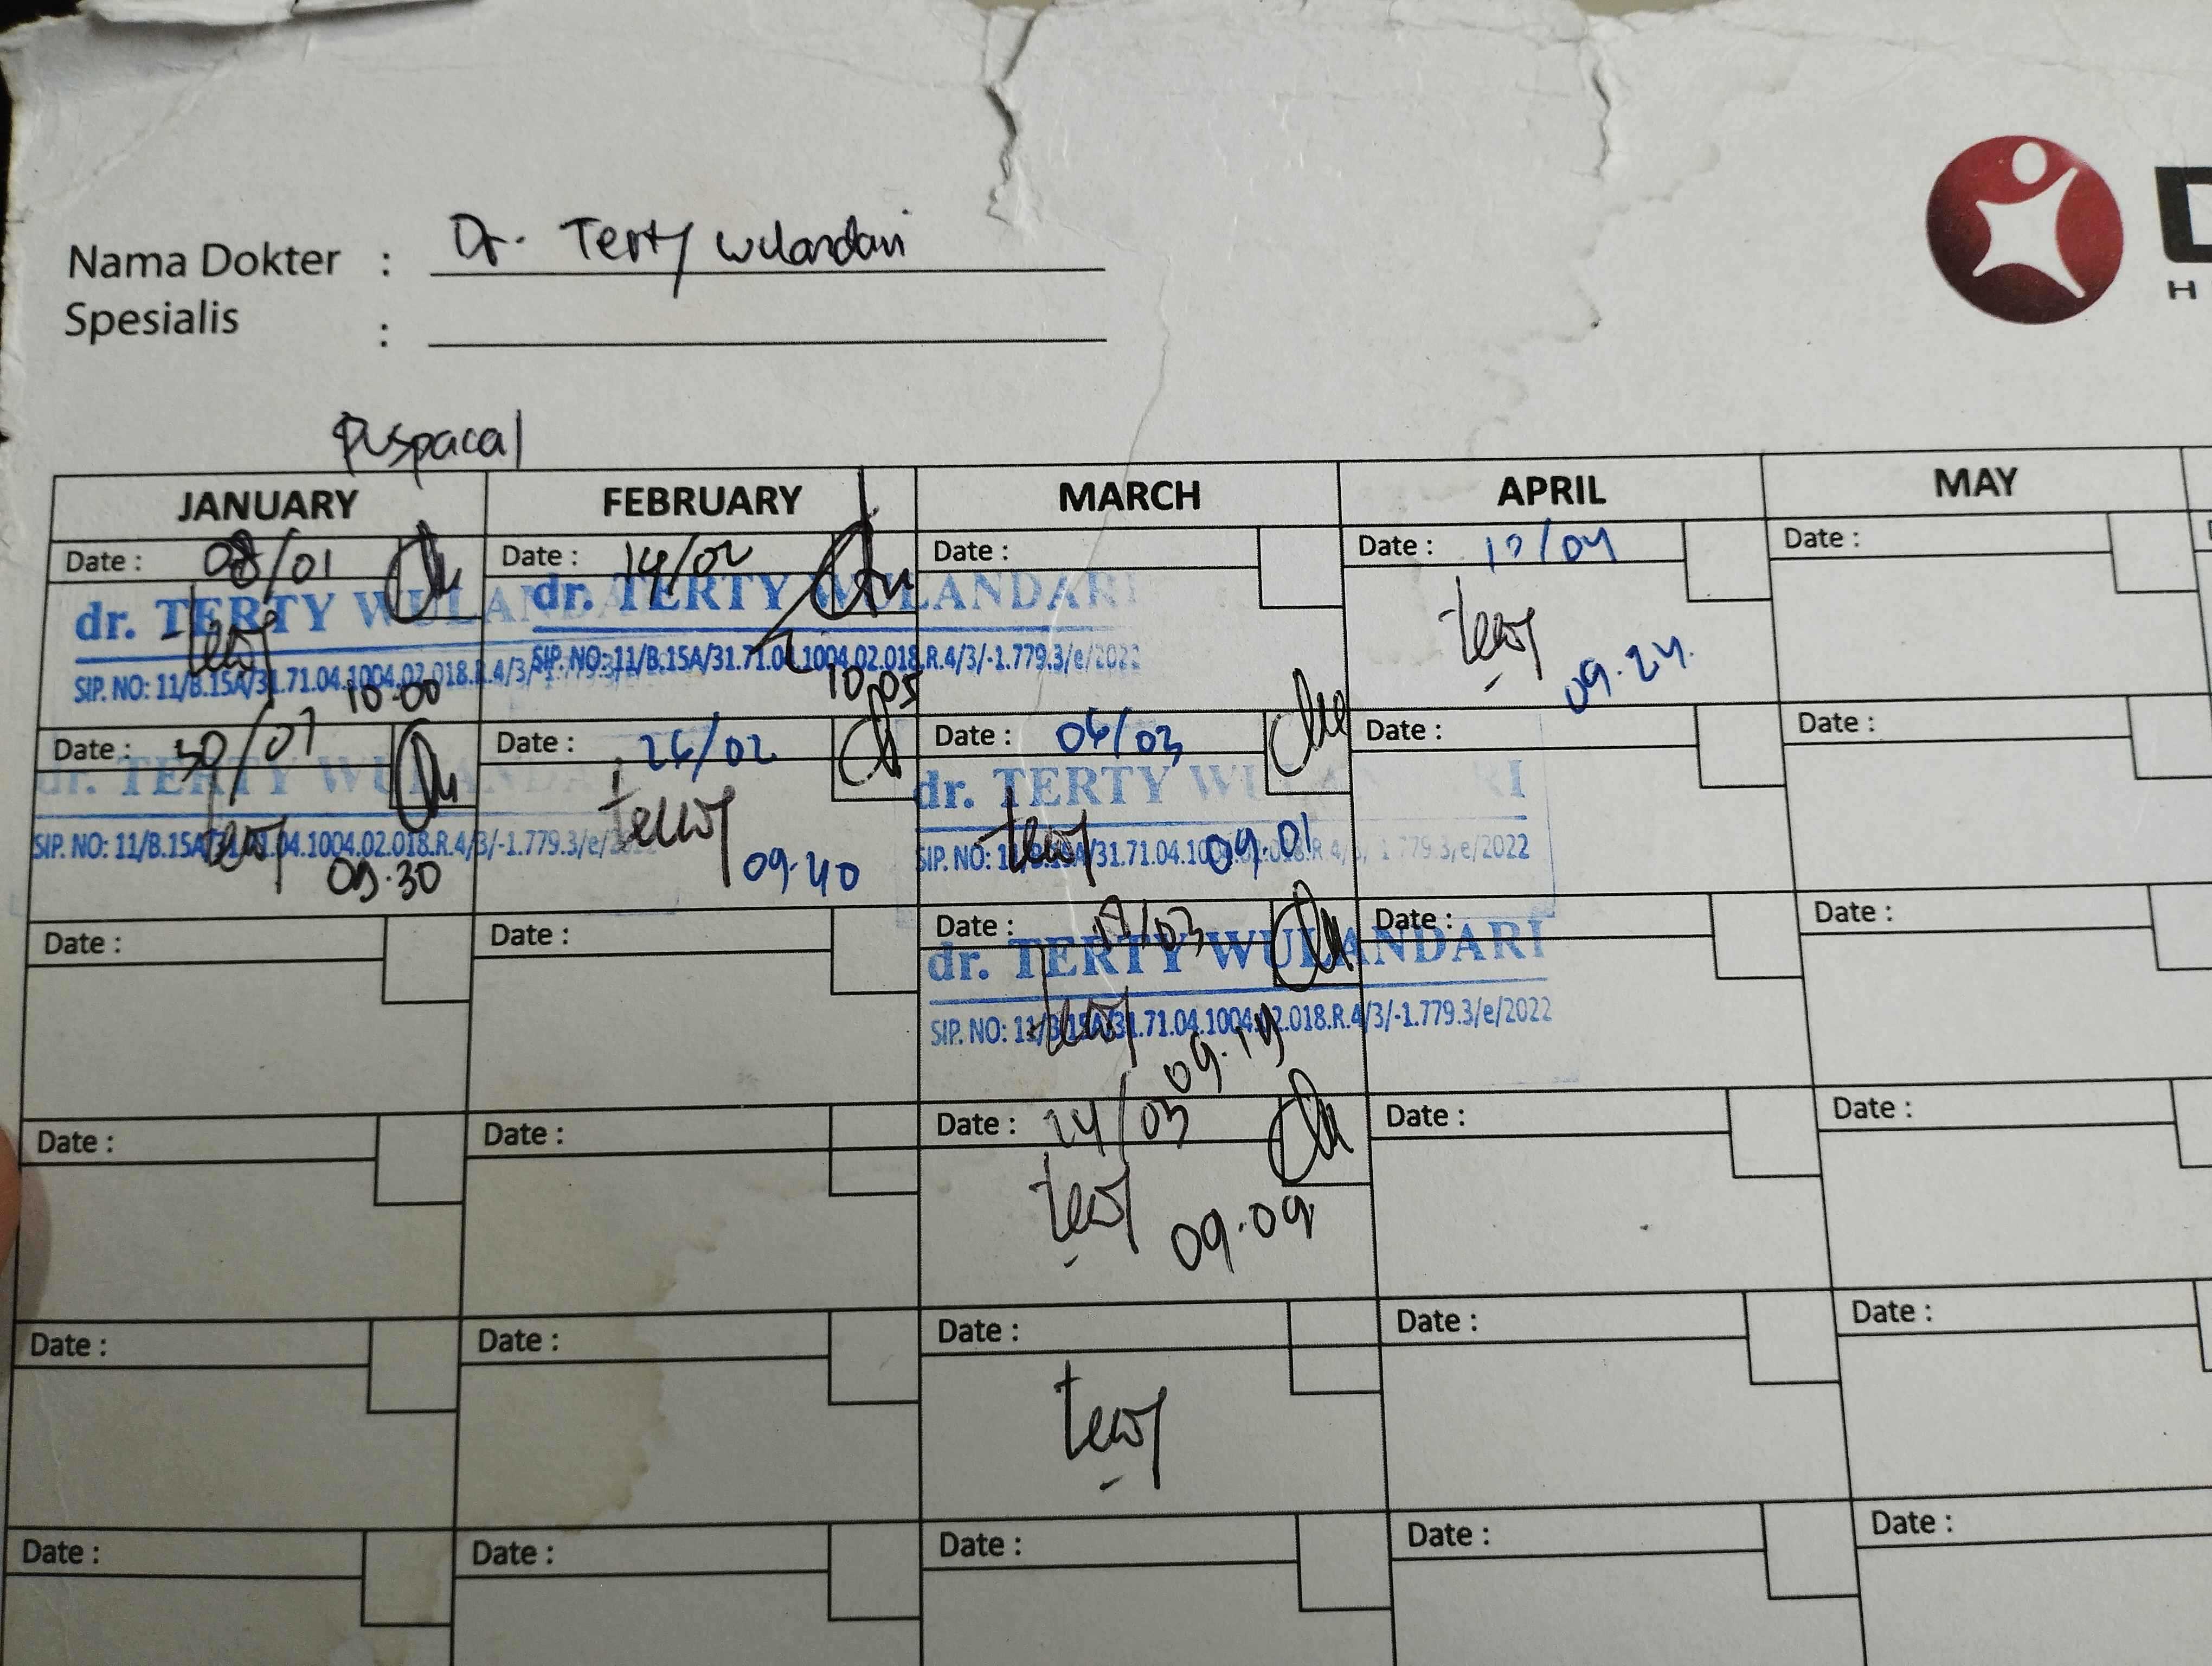 Nama Dokter : Dr. Terty Wulandari
Spesialis :
Puspacal
JANUARY FEBRUARY MARCH APRIL MAY
Date : 08/01 Date : 14/02 Date : Date : Date :
dr. TERTY WULAN dr. TERTY WULANDARI
SIP. NO: 11/B.15A/31.71.04.1004.02.018.R.4/3/ SIP. NO: 11/B.15A/31.71.04.1004.02.018.R.4/3/-1.779.3/e/2022
10.00 10.05 09.24.
Date : 30/01 Date : 26/02 Date : 06/03 Date : Date :
dr. TERTY WULANDA dr. TERTY WULANDARI
SIP. NO: 11/B.15A/31.71.04.1004.02.018.R.4/3/-1.779.3/e/2022 SIP. NO: 11/B.15A/31.71.04.1004.02.018.R.4/3/-1.779.3/e/2022
09.30 09.40 09.01
Date : Date : Date : Date : Date :
dr. TERTY WULANDARI
SIP. NO: 11/B.15A/31.71.04.1004.02.018.R.4/3/-1.779.3/e/2022
09.19
Date : Date : Date : 24/03 Date : Date :
09.09
Date : Date : Date : Date : Date :
Date : Date : Date : Date : Date :